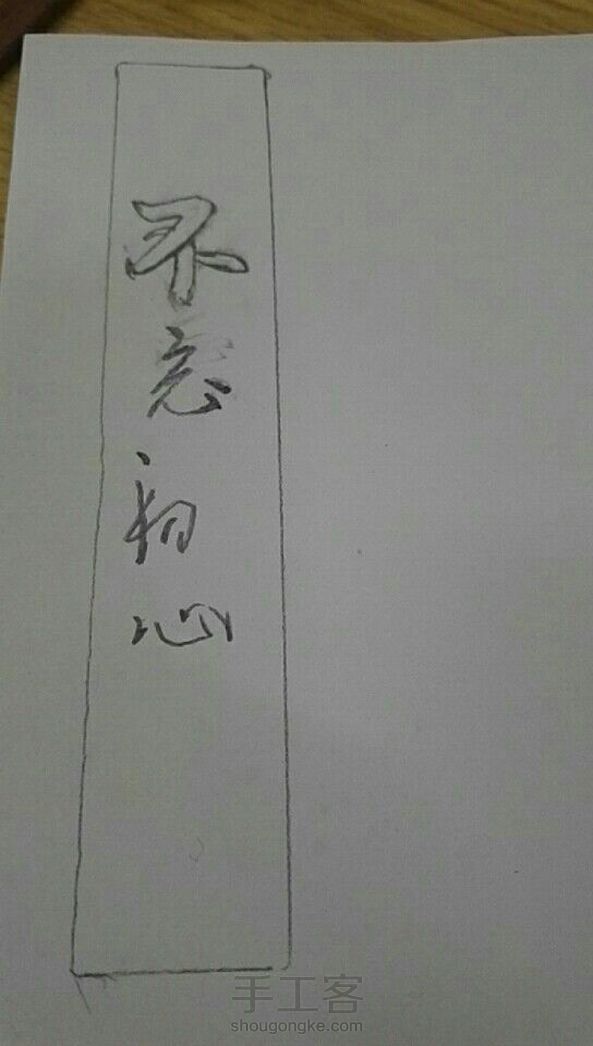 不忘初心
手工客
shougongke.com